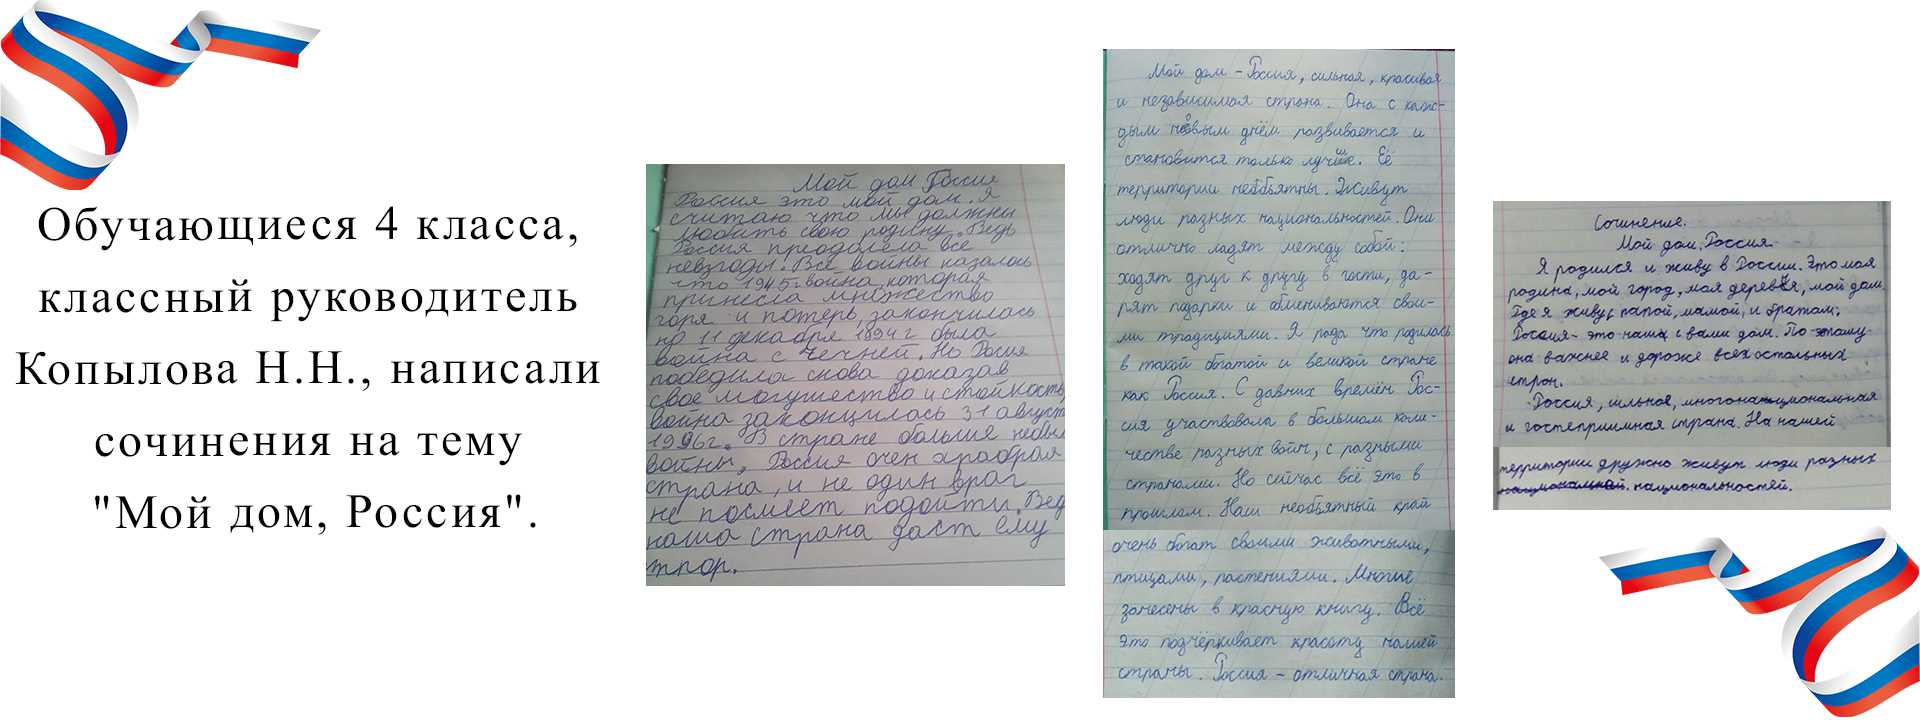 Обучающиеся 4 класса,
классный руководитель
Копылова Н.Н., написали
сочинения на тему
"Мой дом, Россия".
Мой дом Россия
Россия это мой дом. Я
считаю что мы должны
любить свою родину. Ведь
Россия преодолела все
невзгоды. Все войны казалось
что 1945г. война, которая
принесла множество
горя и потерь, закончилась
но 11 декабря 1994 г была
война с Чечней. Но Росия
победила снова доказав
свое могущество и стойкость,
война закончилась 31 август
1996г. В стране больше небыл
войны, Россия очен храбрая
страна, и не один враг
не посмеет подойти. Вед
наша страна даст ему
тпор.
Мой дом – Россия, сильная, красивая
и независимая страна. Она с каж-
дым новым днём развивается и
становится только лучше. Её
территории необьятны. Живут
люди разных национальностей. Они
отлично ладят между собой:
ходят друг к другу в гости, да-
рят подарки и обмениваются свои-
ми традициями. Я рада что родилась
в такой богатой и великой стране
как Россия. С давних времён Рос-
сия участвовала в большом коли-
честве разных войн, с разными
странами. Но сейчас всё это в
прошлом. Наш необьятный край
очень богат своими животными,
птицами, растениями. Многие
занесены в красную книгу. Всё
это подчёркивает красоту нашей
страны. Россия – отличная страна.
Сочинение.
Мой дом, Россия
Я родился и живу в России. Это моя
родина, мой город, моя деревня, мой дом,
Где я живу с папой, мамой, и братом.
Россия- это наш с вами дом. По этому
она важнее и дороже всех остальных
стран.
Россия, сильная, многонациональная
и гостеприимная страна. На нашей
территории дружно живут люди разных
национальностей.